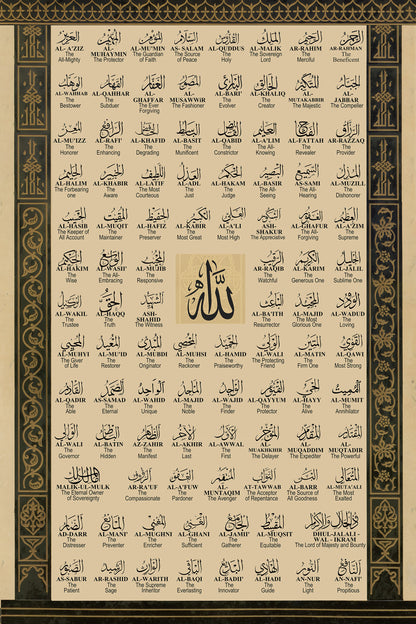 الرحمن
AR-RAHMAN
The
Beneficent
الرحيم
AR-RAHIM
The
Merciful
الملك
AL-MALIK
The Sovereign
Lord
القدوس
AL-QUDDUS
The
Holy
السلام
AS-SALAM
The Source
of Peace
المؤمن
AL-MU'MIN
The Guardian
of Faith
المهيمن
AL-
MUHAYMIN
The Protector
العزيز
AL-A'ZIZ
The
All-Mighty
الجبار
AL-
JABBAR
The Compeller
المتكبر
AL-
MUTAKABBIR
The Majestic
الخالق
AL-KHALIQ
The
Creator
البارئ
AL-BARI'
The
Evolver
المصور
AL-
MUSAWWIR
The Fashioner
الغفار
AL-
GHAFFAR
The Ever
Forgiving
القهار
AL-QAHHAR
The
Subduer
الوهاب
AL-WAHHAB
The
Bestower
الرزاق
AR-RAZZAQ
The
Provider
الفتاح
AL-FATTAH
The
Revealer
العليم
AL-A'LIM
The All-
Knowing
القابض
AL-QABID
The
Constrictor
الباسط
AL-BASIT
The
Munificent
الخافض
AL-KHAFID
The
Degrading
الرافع
AR-RAFI'
The
Enhancing
المعز
AL-MU'IZZ
The
Honorer
المذل
AL-MUZILL
The
Dishonorer
السميع
AS-SAMI
The All-
Hearing
البصير
AL-BASIR
The All-
Seeing
الحكم
AL-HAKAM
The
Judge
العدل
AL-ADL
The
Just
اللطيف
AL-LATIF
The Most
Courteous
الخبير
AL-KHABIR
The
Aware
الحليم
AL-HALIM
The Forbearing
one
العظيم
AL-A'ZIM
The
Supreme
الغفور
AL-GHAFUR
The All-
Forgiving
الشكور
ASH-
SHAKUR
The Appreciative
العلي
AL-A'LI
The
Most High
الكبير
AL-KABIR
The
Most Great
الحفيظ
AL-HAFIZ
The
Preserver
المقيت
AL-MUQIT
The
Maintainer
الحسيب
AL-HASIB
The Keeper of
All Account
الجليل
AL-JALIL
The
Sublime One
الكريم
AL-KARIM
The
Generous One
الرقيب
AR-RAQIB
The
Watchful
الله
المجيب
AL-MUJIB
The
Responsive
الواسع
AL-WASIF'
The All-
Embracing
الحكيم
AL-HAKIM
The
Wise
الودود
AL-WADUD
The
Loving
المجيد
AL-MAJID
The Most
Glorious One
الباعث
AL-BA'ITH
The
Resurrector
الشهيد
ASH-
SHAHID
The Witness
الحق
AL-HAQQ
The
Truth
الوكيل
AL-WAKIL
The
Trustee
القوي
AL-QAWI
The Most
Strong
المتين
AL-MATIN
The
Firm One
الولي
AL-WALI
The Protecting
Friend
الحميد
AL-HAMID
The
Praiseworthy
المحصي
AL-MUHSI
The
Reckoner
المبدئ
AL-MUBDI
The
Originator
المعيد
AL-MU'ID
The
Restorer
المحيي
AL-MUHYI
The Giver
of Life
المميت
AL-MUMIT
The
Annihilator
الحي
AL-HAYY
The
Alive
القيوم
AL-QAYYUM
The
Protector
الواجد
AL-WAJID
The
Finder
الماجد
AL-MAJID
The
Noble
الواحد
AL-WAHID
The
Unique
الصمد
AS-SAMAD
The
Eternal
القادر
AL-QADIR
The
Able
المقتدر
AL-
MUQTADIR
The
Powerful
المقدم
AL-
MUQADDIM
The Expediter
المؤخر
AL-
MUAKHKHIR
The Delayer
الأول
AL-AWWAL
The
First
الآخر
AL-AKHIR
The
Last
الظاهر
AZ-ZAHIR
The
Manifest
الباطن
AL-BATIN
The
Hidden
الوالي
AL-WALI
The
Governor
المتعالي
AL-MUTA'ALI
The Most
Exalted
البر
AL-BARR
The Source of
All Goodness
التواب
AT-TAWWAB
The Acceptor
of Repentance
المنتقم
AL-
MUNTAQIM
The Avenger
العفو
AL-A'FUW
The
Pardoner
الرؤوف
AR-RA'UF
The
Compassionate
مالك الملك
MALIK-UL-MULK
The Eternal Owner
of Sovereignty
ذو الجلال والإكرام
DHUL-JALALI -
WAL - IKRAM
The Lord of Majesty and Bounty
المقسط
AL-MUQSIT
The
Equitable
الجامع
AL-JAMIF'
The
Gatherer
الغني
AL-GHANI
The
Sufficient
المغني
AL-MUGHNI
The
Enricher
المانع
AL-MANI'
The
Preventer
الضار
AD-DARR
The
Distresser
النافع
AN-NAFI'
The
Propitious
النور
AN-NUR
The
Light
الهادي
AL-HADI
The
Guide
البديع
AL-BADIF'
The
Innovator
الباقي
AL-BAQI
The
Everlasting
الوارث
AL-WARITH
The Supreme
Inheritor
الرشيد
AR-RASHID
The
Sage
الصبور
AS-SABUR
The
Patient